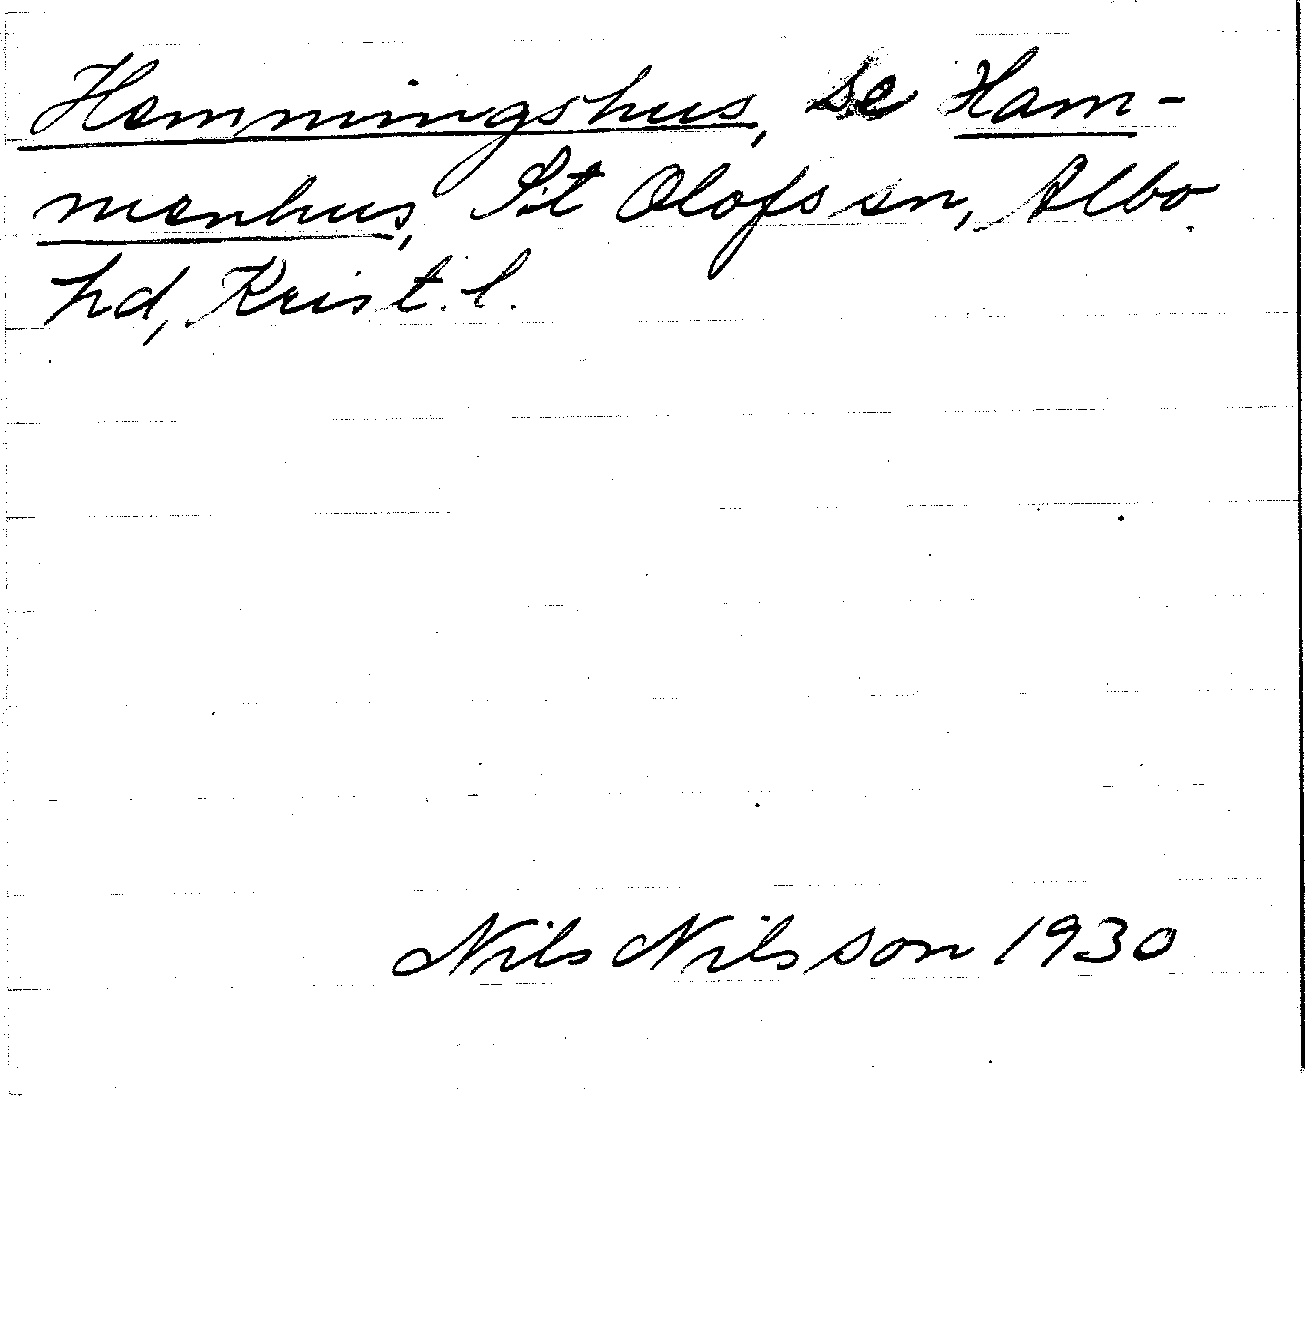 Hemmingshus, se Ham-
menhus, S:t Olofs sn, Albo
hd, Krist. l.
Nils Nilsson 1930